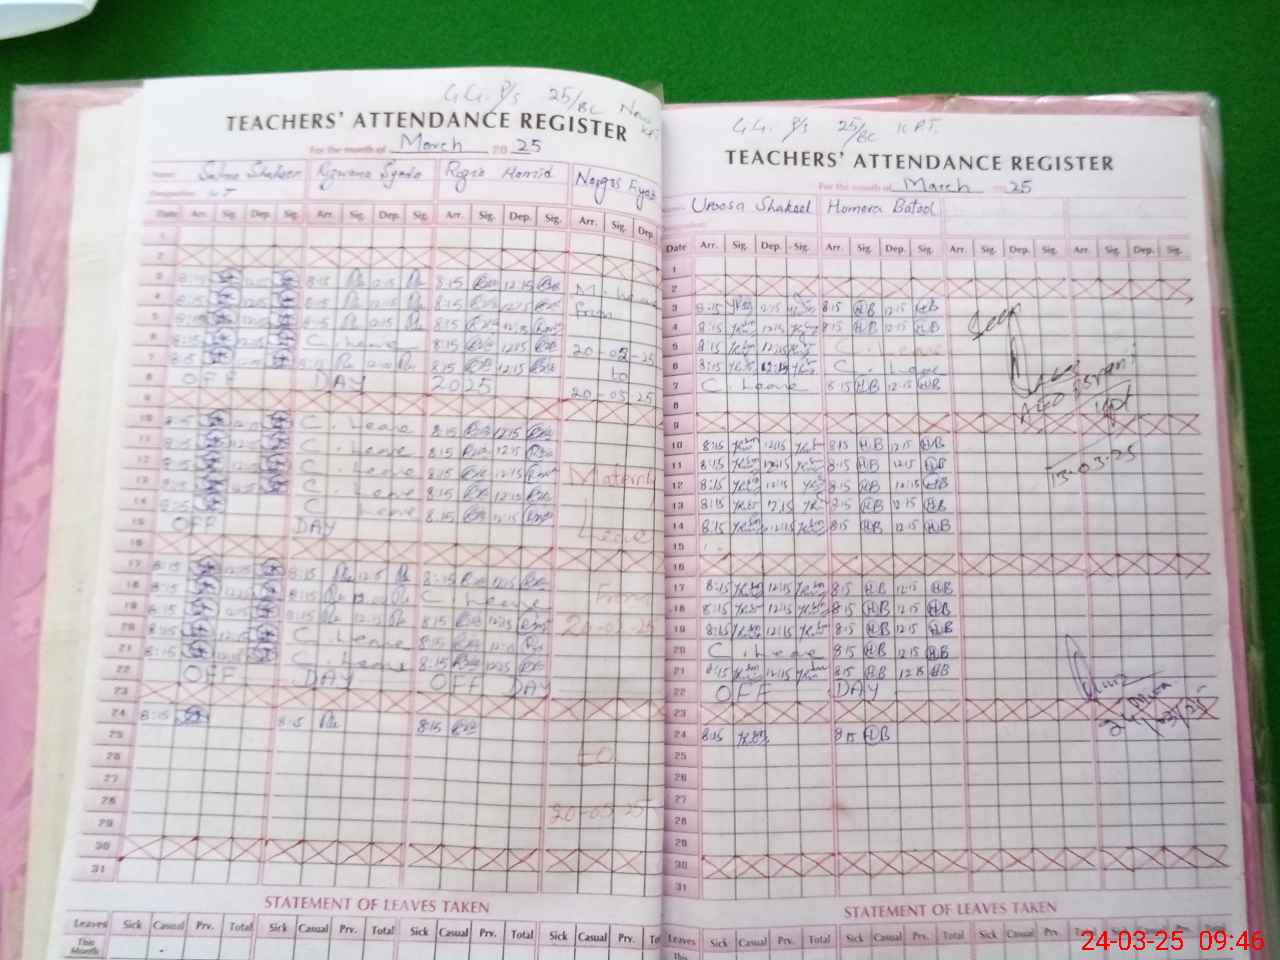 G.G. P/S 25/BC New
TEACHERS' ATTENDANCE REGISTER
For the month of March 2025
Name: Salma Shaheen Rizwana Syeda Rozia Hamid Narges Fyaz
Date Arr. Sig. Dep. Sig. Arr. Sig. Dep. Sig. Arr. Sig. Dep. Sig. Arr. Sig. Dep.
1
2
3 8:15 12:15 8:15 12:15 8:15 12:15 M. Leave
4 8:15 12:15 8:15 12:15 8:15 12:15 From
5 8:15 12:15 8:15 12:15 8:15 12:15
6 8:15 12:15 C. Leave 8:15 12:15 20-02-25
7 8:15 12:15 8:15 12:15 8:15 12:15 to
8 OFF DAY 2025 20-05-25
9
10 8:15 12:15 C. Leave 8:15 12:15
11 8:15 12:15 C. Leave 8:15 12:15
12 8:15 12:15 C. Leave 8:15 12:15 Maternity
13 8:15 12:15 C. Leave 8:15 12:15
14 C. Leave 8:15 12:15 Leave
15 OFF DAY
16
17 8:15 12:15 8:15 12:15 8:15 12:15
18 8:15 12:15 8:15 12:15 C. Leave From
19 8:15 12:15 8:15 12:15 8:15 12:15
20 8:15 12:15 C. Leave 8:15 12:15
21 8:15 12:15 C. Leave 8:15 12:15
22 OFF DAY OFF DAY
23
24 8:15 8:15 8:15
25
26 to
27
28 20-05-25
29
30
31
STATEMENT OF LEAVES TAKEN
Leaves Sick Casual Prv. Total Sick Casual Prv. Total Sick Casual Prv. Total Sick Casual Prv.
This Month
G.G. P/S 25/BC KPT.
TEACHERS' ATTENDANCE REGISTER
For the month of March 2025
Uroosa Shakeel Homera Batool
Date Arr. Sig. Dep. Sig. Arr. Sig. Dep. Sig. Arr. Sig. Dep. Sig. Arr. Sig. Dep. Sig.
1
2
3 8:15 12:15 8:15 HB 12:15 HB
4 8:15 12:15 8:15 HB 12:15 HB
5 8:15 12:15 C. Leave
6 8:15 12:15 C. Leave
7 C. Leave 8:15 HB 12:15 HB
8
9
10 8:15 12:15 8:15 HB 12:15 HB
11 8:15 12:15 8:15 HB 12:15 HB
12 8:15 12:15 8:15 HB 12:15 HB
13 8:15 12:15 8:15 HB 12:15 HB
14 8:15 12:15 8:15 HB 12:15 HB
15
16
17 8:15 12:15 8:15 HB 12:15 HB
18 8:15 12:15 8:15 HB 12:15 HB
19 8:15 12:15 8:15 HB 12:15 HB
20 C. Leave 8:15 HB 12:15 HB
21 8:15 12:15 8:15 HB 12:15 HB
22 OFF DAY
23
24 8:15 8:15 HB
25
26
27
28
29
30
31
AEO
13-03-25
STATEMENT OF LEAVES TAKEN
Leaves Sick Casual Prv. Total Sick Casual Prv. Total Sick Casual Prv. Total Sick Casual Prv. Total
This
24-03-25 09:46